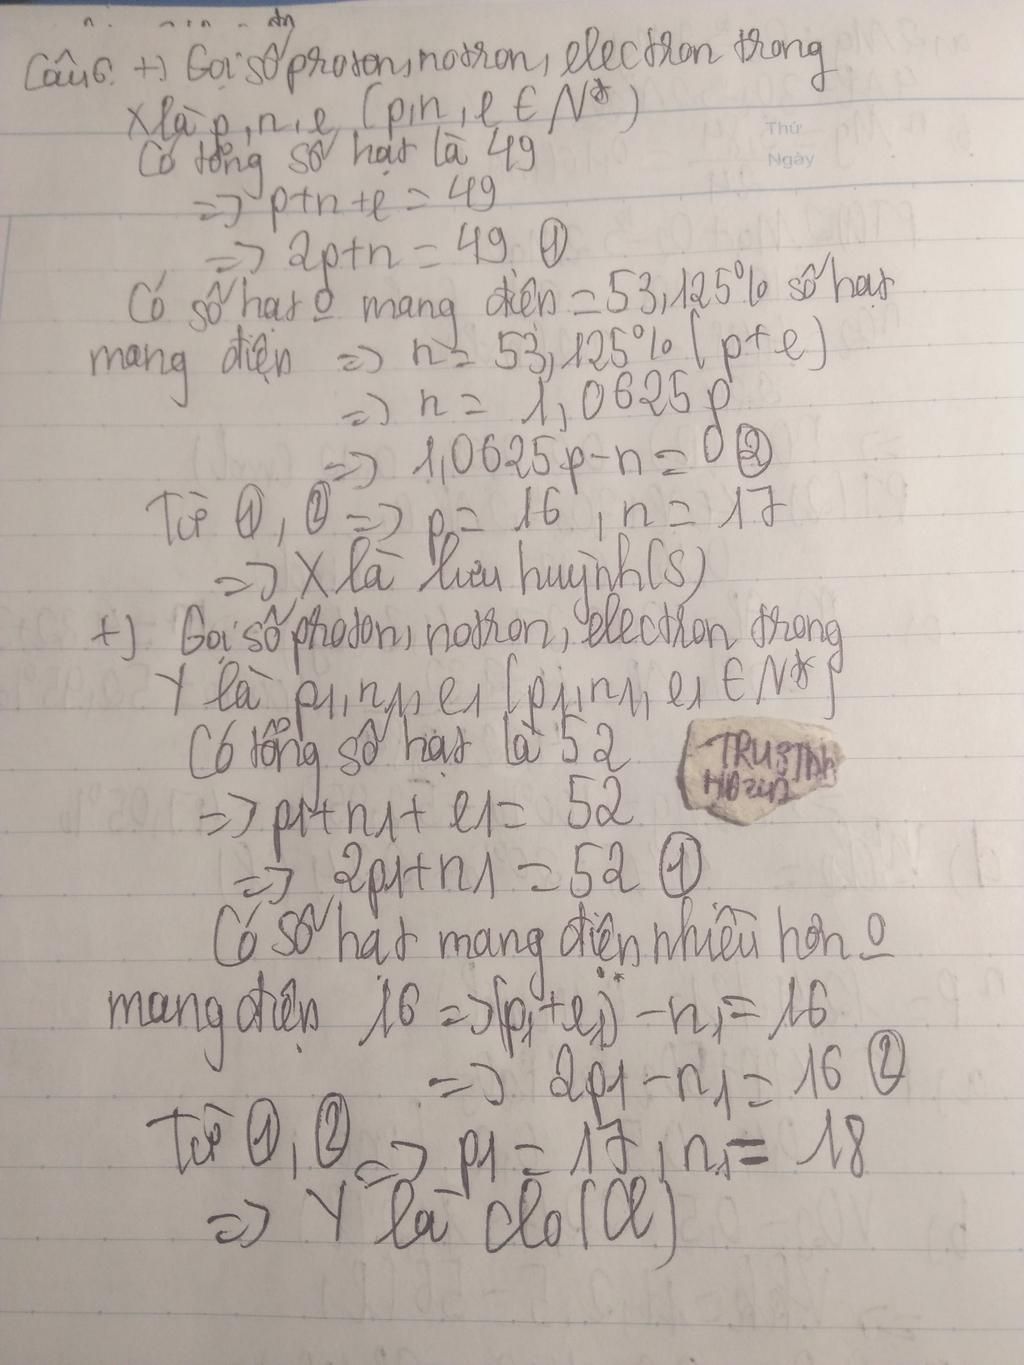 Câu 6. +) Gọi số proton, notron, electron trong
X là p, n, e (p, n, e ∈ N*)
Thứ
Ngày
Có tổng số hạt là 49
=> p+n+e = 49
=> 2p+n = 49 ①
Có số hạt o mang điện = 53,125% số hạt
mang điện => n = 53,125% (p+e)
=> n = 1,0625p
=> 1,0625p - n = 0 ②
Từ ①, ② => p = 16, n = 17
=> X là lưu huỳnh (S)
+) Gọi số proton, notron, electron trong
Y là p1, n1, e1 (p1, n1, e1 ∈ N*)
Có tổng số hạt là 52
=> p1+n1+ e1 = 52
=> 2p1+n1 = 52 ①
Có số hạt mang điện nhiều hơn o
mang điện 16 => (p1+e1) - n1 = 16
=> 2p1 - n1 = 16 ②
Từ ①, ② => p1 = 17, n1 = 18
=> Y là clo (Cl)